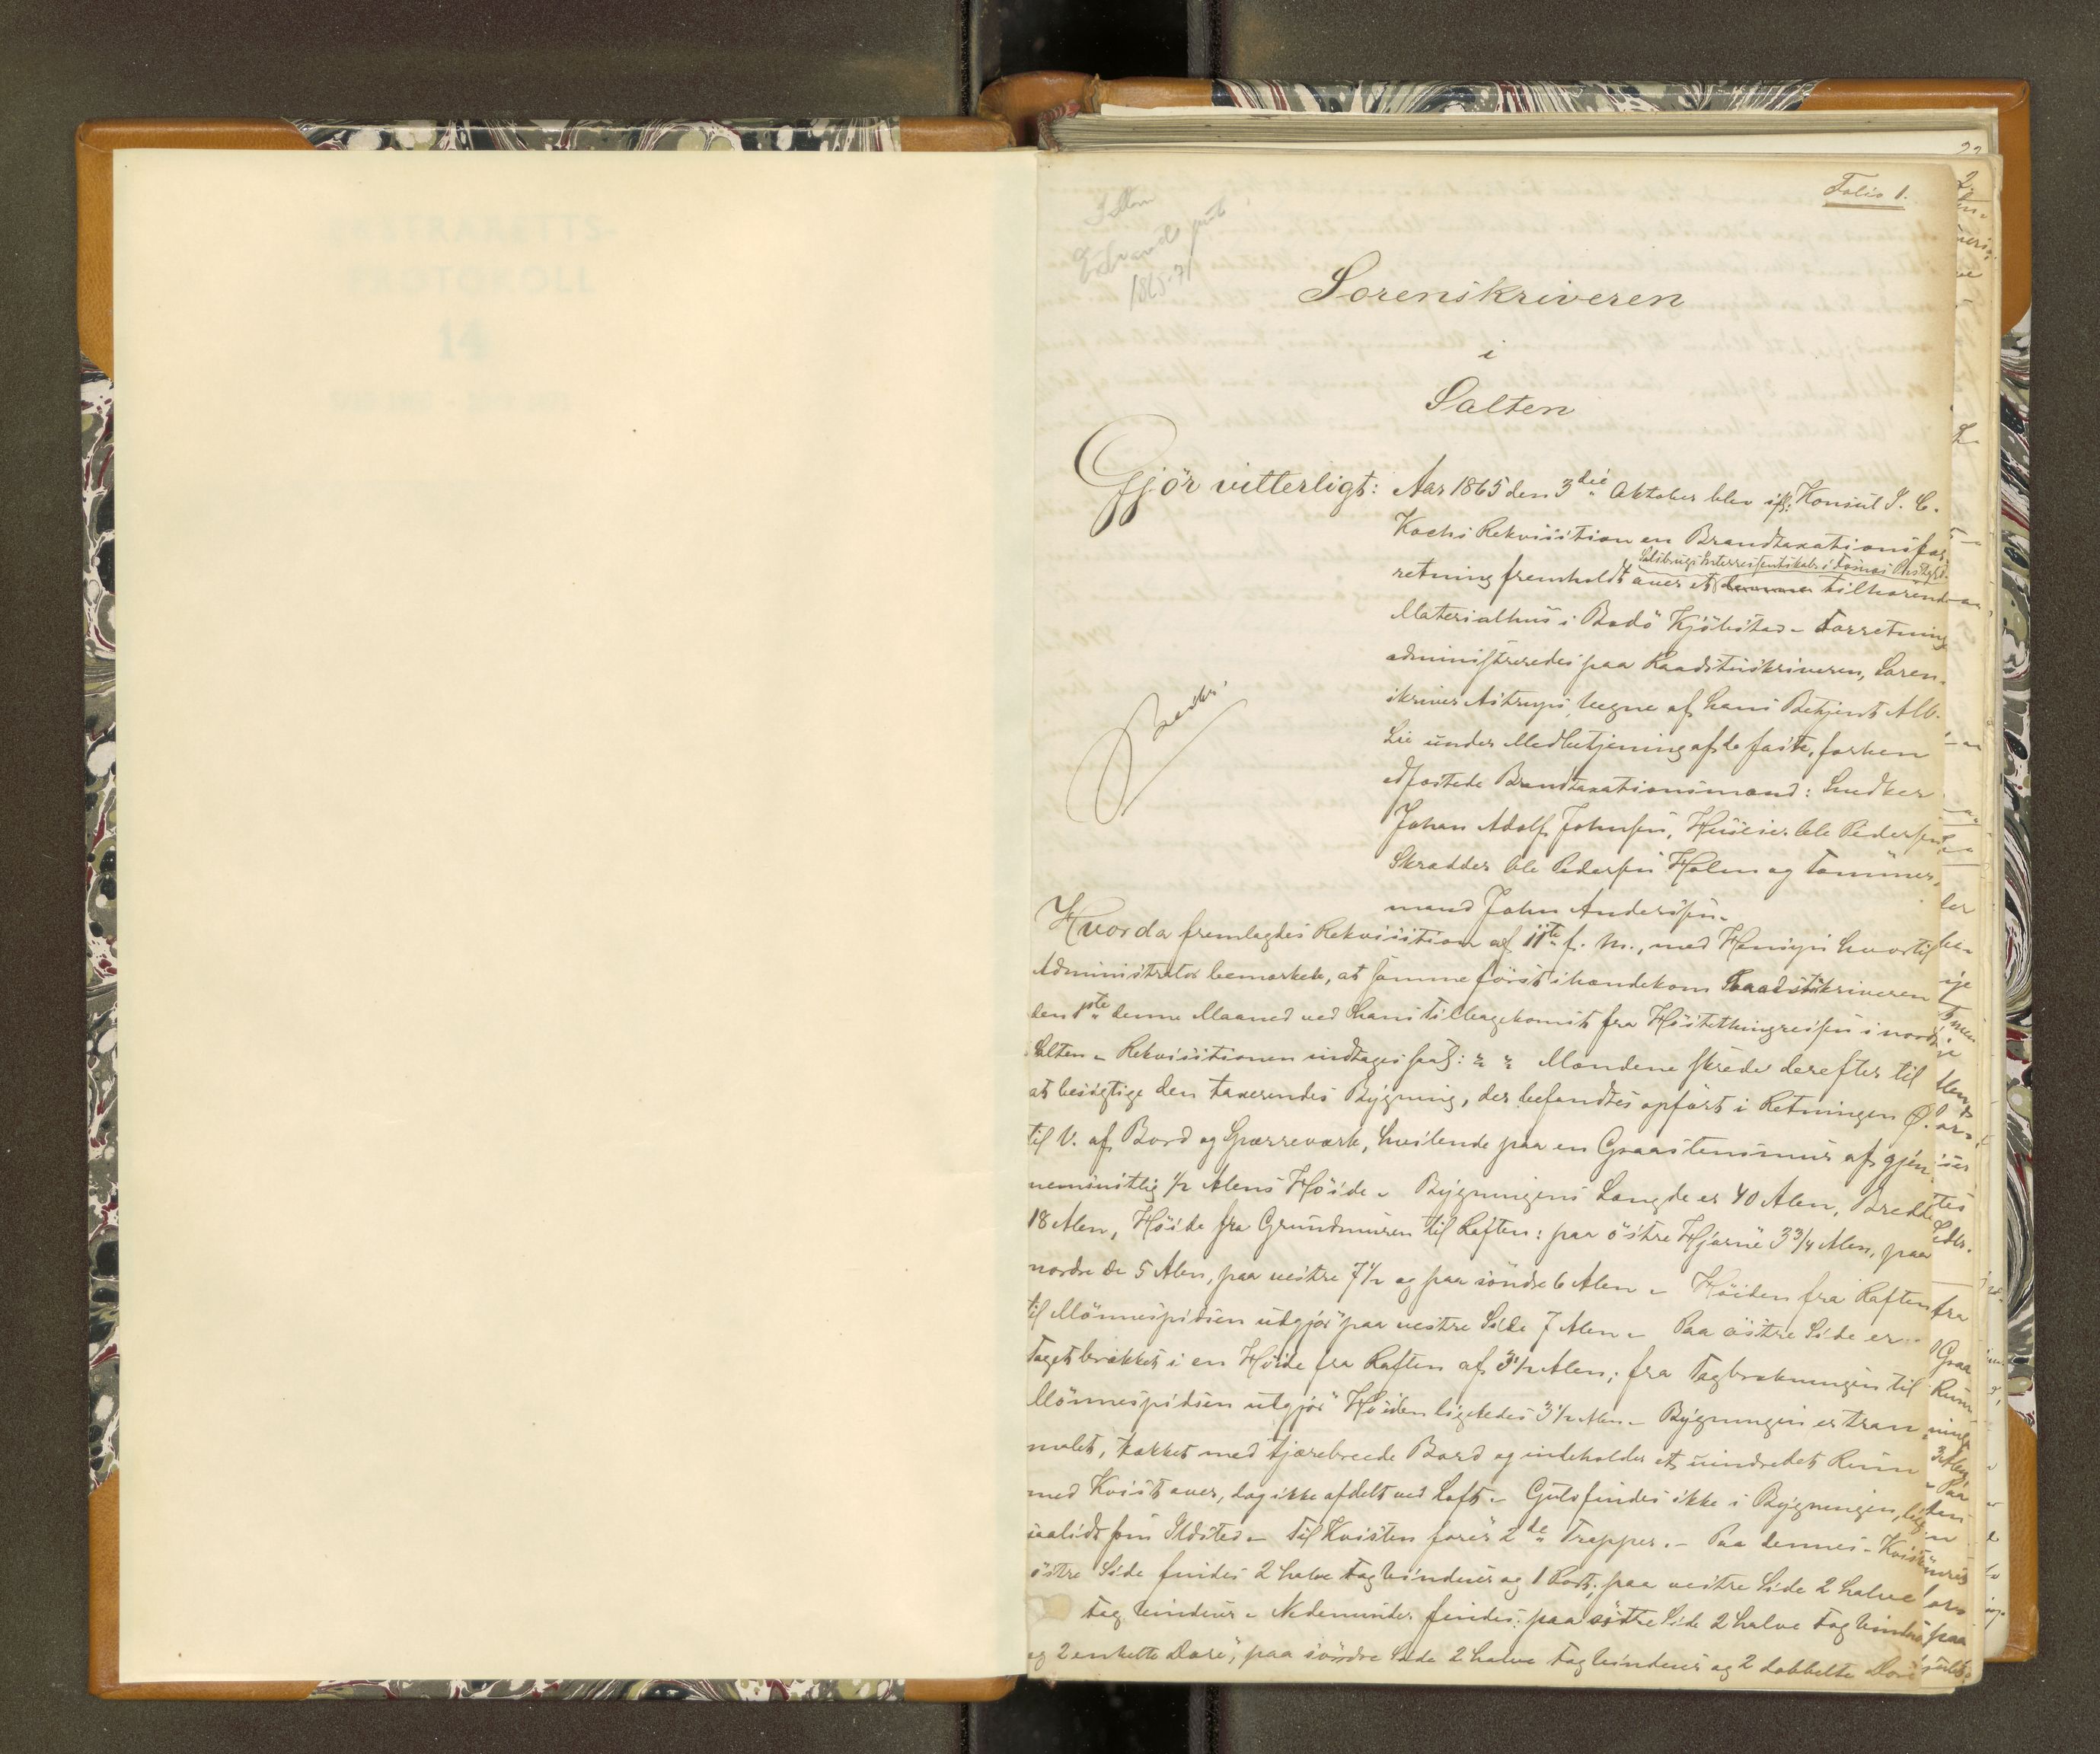 Folio 1.
1865-71
Sorenskriveren
i
Salten
Gjör vitterligt: Aar 1865 den 3die Oktober blev if. Konsul J. C.
Kochs Rekvisition en Brandtaxationsfor-
retning fremholdt over et denne tilhørende
Materialhus i Bodö Kjöbstad - Forretning
administreredes paa Raadstuskriveren, Soren-
skriver Astrups Vegne af hans Betjent Alb.
Lie under Medbetjening af de faste, forhen
edfæstede Brandtaxationsmænd: Snedker
Johan Adolf Johnsen, Huseier Ole Pedersen
Skrædder Ole Pedersen Holm og Tömmer-
mand John Andersen.
Hvorda fremlagdes Rekvisition af 11te f. M., med Hensyn hvortil
Administrator bemærkede, at samme först ihændekom Raadstuskriveren
den 1ste denne Maaned ved hans Tilbagekomst fra Høstethingreisen i nordre
Salten - Rekvisitionen indtages saal: Mændene skrede derefter til
at besigtige den taxerendes Bygning, der befandtes opfört i Retningen Ø.
til V. af Bord og Sperreværk, hvilende paa en Graastensmur af gjen-
nemsnitlig 1/2 Alens Höide - Bygningens Længde er 40 Alen, Bredde
18 Alen, Höide fra Grundmuren til Raften: paa östre Hjørne 3 3/4 Alen, paa
nordre do 5 Alen, paa vestre 7 1/2 og paa söndre 6 Alen - Höiden fra Raften
til Mönnespidsen udgjör paa vestre Side 7 Alen - Paa östre Side er
Taget brækket i en Höide fra Raften af 3 1/2 Alen; fra Tagbrækningen til
Mönnespidsen udgjör Höiden ligeledes 3 1/2 Alen - Bygningen er tran-
malet, tækket med tjærebredede Bord og indeholder et uindredet Rum
med Kvist over, dog ikke afdelt ved Loft - Gulv findes ikke i Bygningen, lige
saalidt som Ildsted - Til Kvisten förer 2de Trapper. - Paa dennes - Kvistens
östre Side findes 2 halve Fag Vinduer og 1 Port; paa vestre Side 2 halve
Fag Vinduer - Nedenunder findes: paa östre Side 2 halve Fag Vinduer
og 2 enkelte Döre, paa söndre Side 2 halve Fag Vinduer og 2 dobbelte Döre